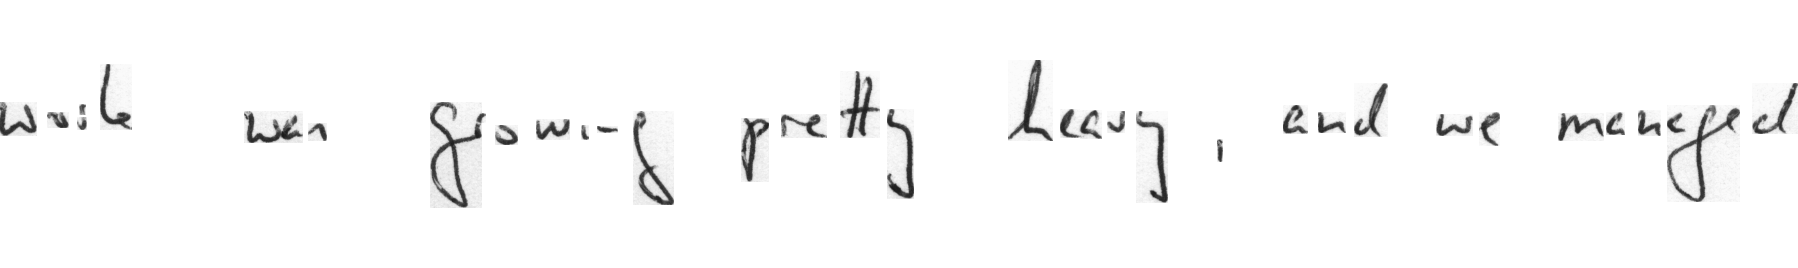 work was growing pretty heavy, and we managed